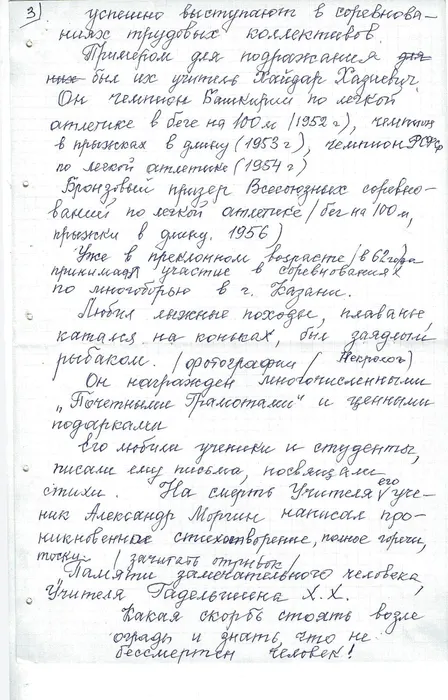 3) успешно выступают в соревнова-
ниях трудовых коллективов.
Примером для подражания для
них был их учитель Хайдар Хазиевич.
Он чемпион Башкирии по легкой
атлетике в беге на 100 м /1952 г), чемпион
в прыжках в длину (1953 г), чемпион РСФСР
по легкой атлетике (1954 г)
Бронзовый призер Всесоюзных соревно-
ваний по легкой атлетике /бег на 100 м,
прыжки в длину. 1956)
Уже в преклонном возрасте /в 62 года
принимал участие в соревнованиях
по многоборью в г. Казани.
Любил лыжные походы, плаванье
катался на коньках, был заядлый
рыбаком. /фотографии / Некролог)
Он награжден многочисленными
„Почетными Грамотами" и ценными
подарками
Его любили ученики и студенты,
писали ему письма, посвящали
стихи. На смерть Учителя его уче-
ник Александр Моргин написал про-
никновенное стихотворение, полное горечи,
тоски. /зачитать отрывок/
„Памяти замечательного человека,
Учителя Гадельшина Х. Х.
Какая скорбь стоять возле
ограды и знать, что не
бессмертен человек!